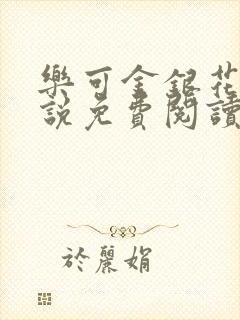 樂可金銀花
說免費閱讀
於麗娟